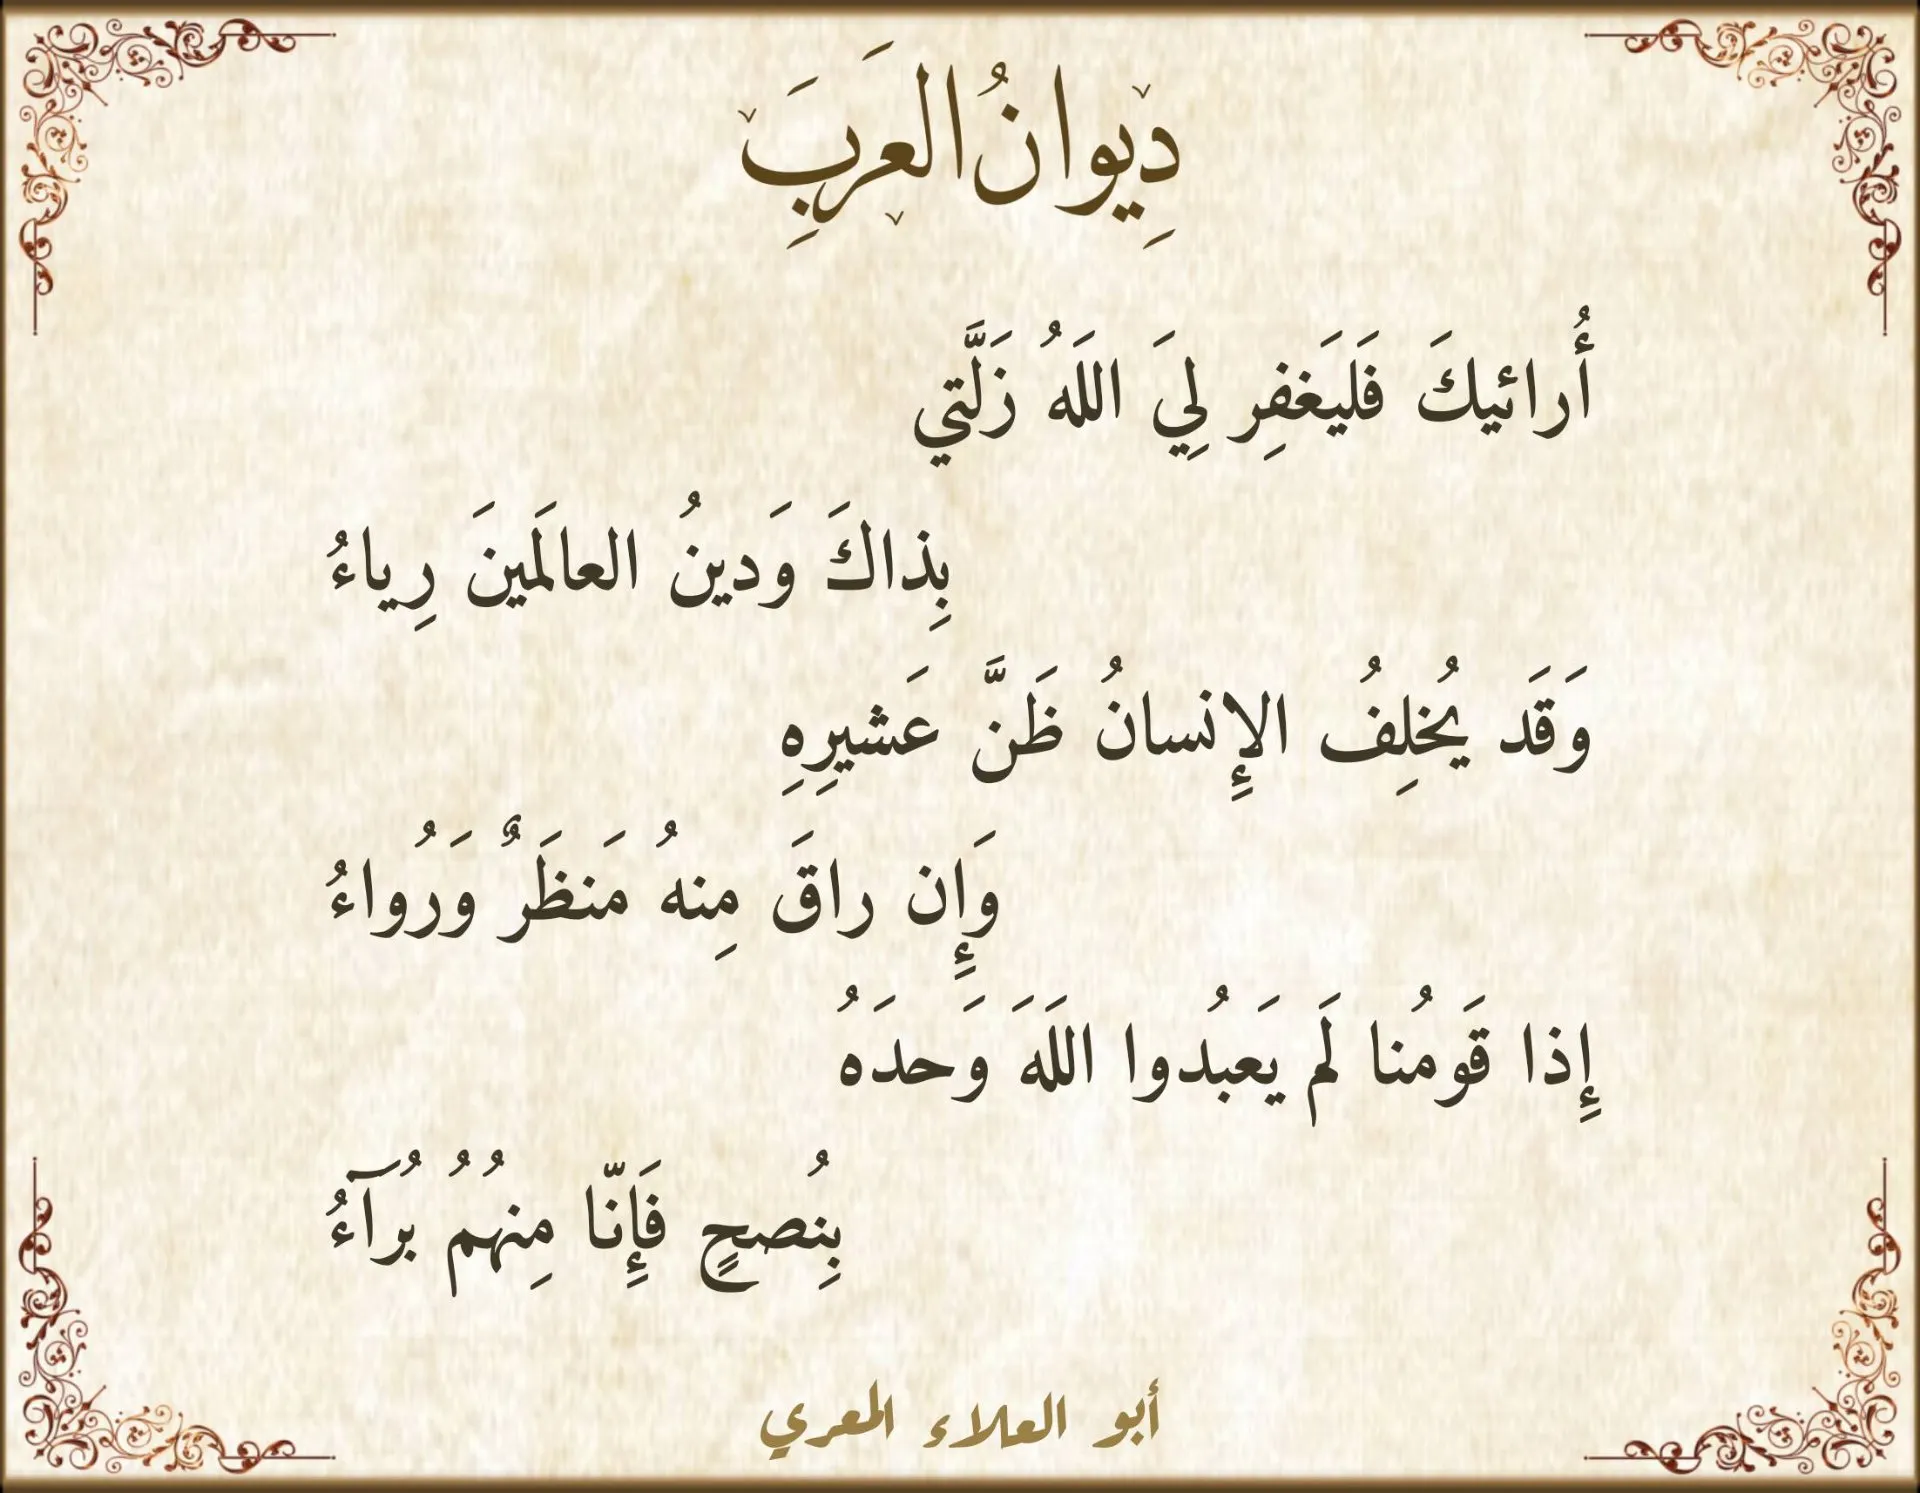 دِيوانُ العَرَبِ
أُرائيكَ فَليَغفِر لِيَ اللَهُ زَلَّتي
بِذاكَ وَدينُ العالَمينَ رِياءُ
وَقَد يُخلِفُ الإِنسانُ ظَنَّ عَشيرِهِ
وَإِن راقَ مِنهُ مَنظَرٌ وَرُواءُ
إِذا قَومُنا لَم يَعبُدوا اللَهَ وَحدَهُ
بِنُصحٍ فَإِنّا مِنهُمُ بُرَآءُ
أبو العلاء المعري